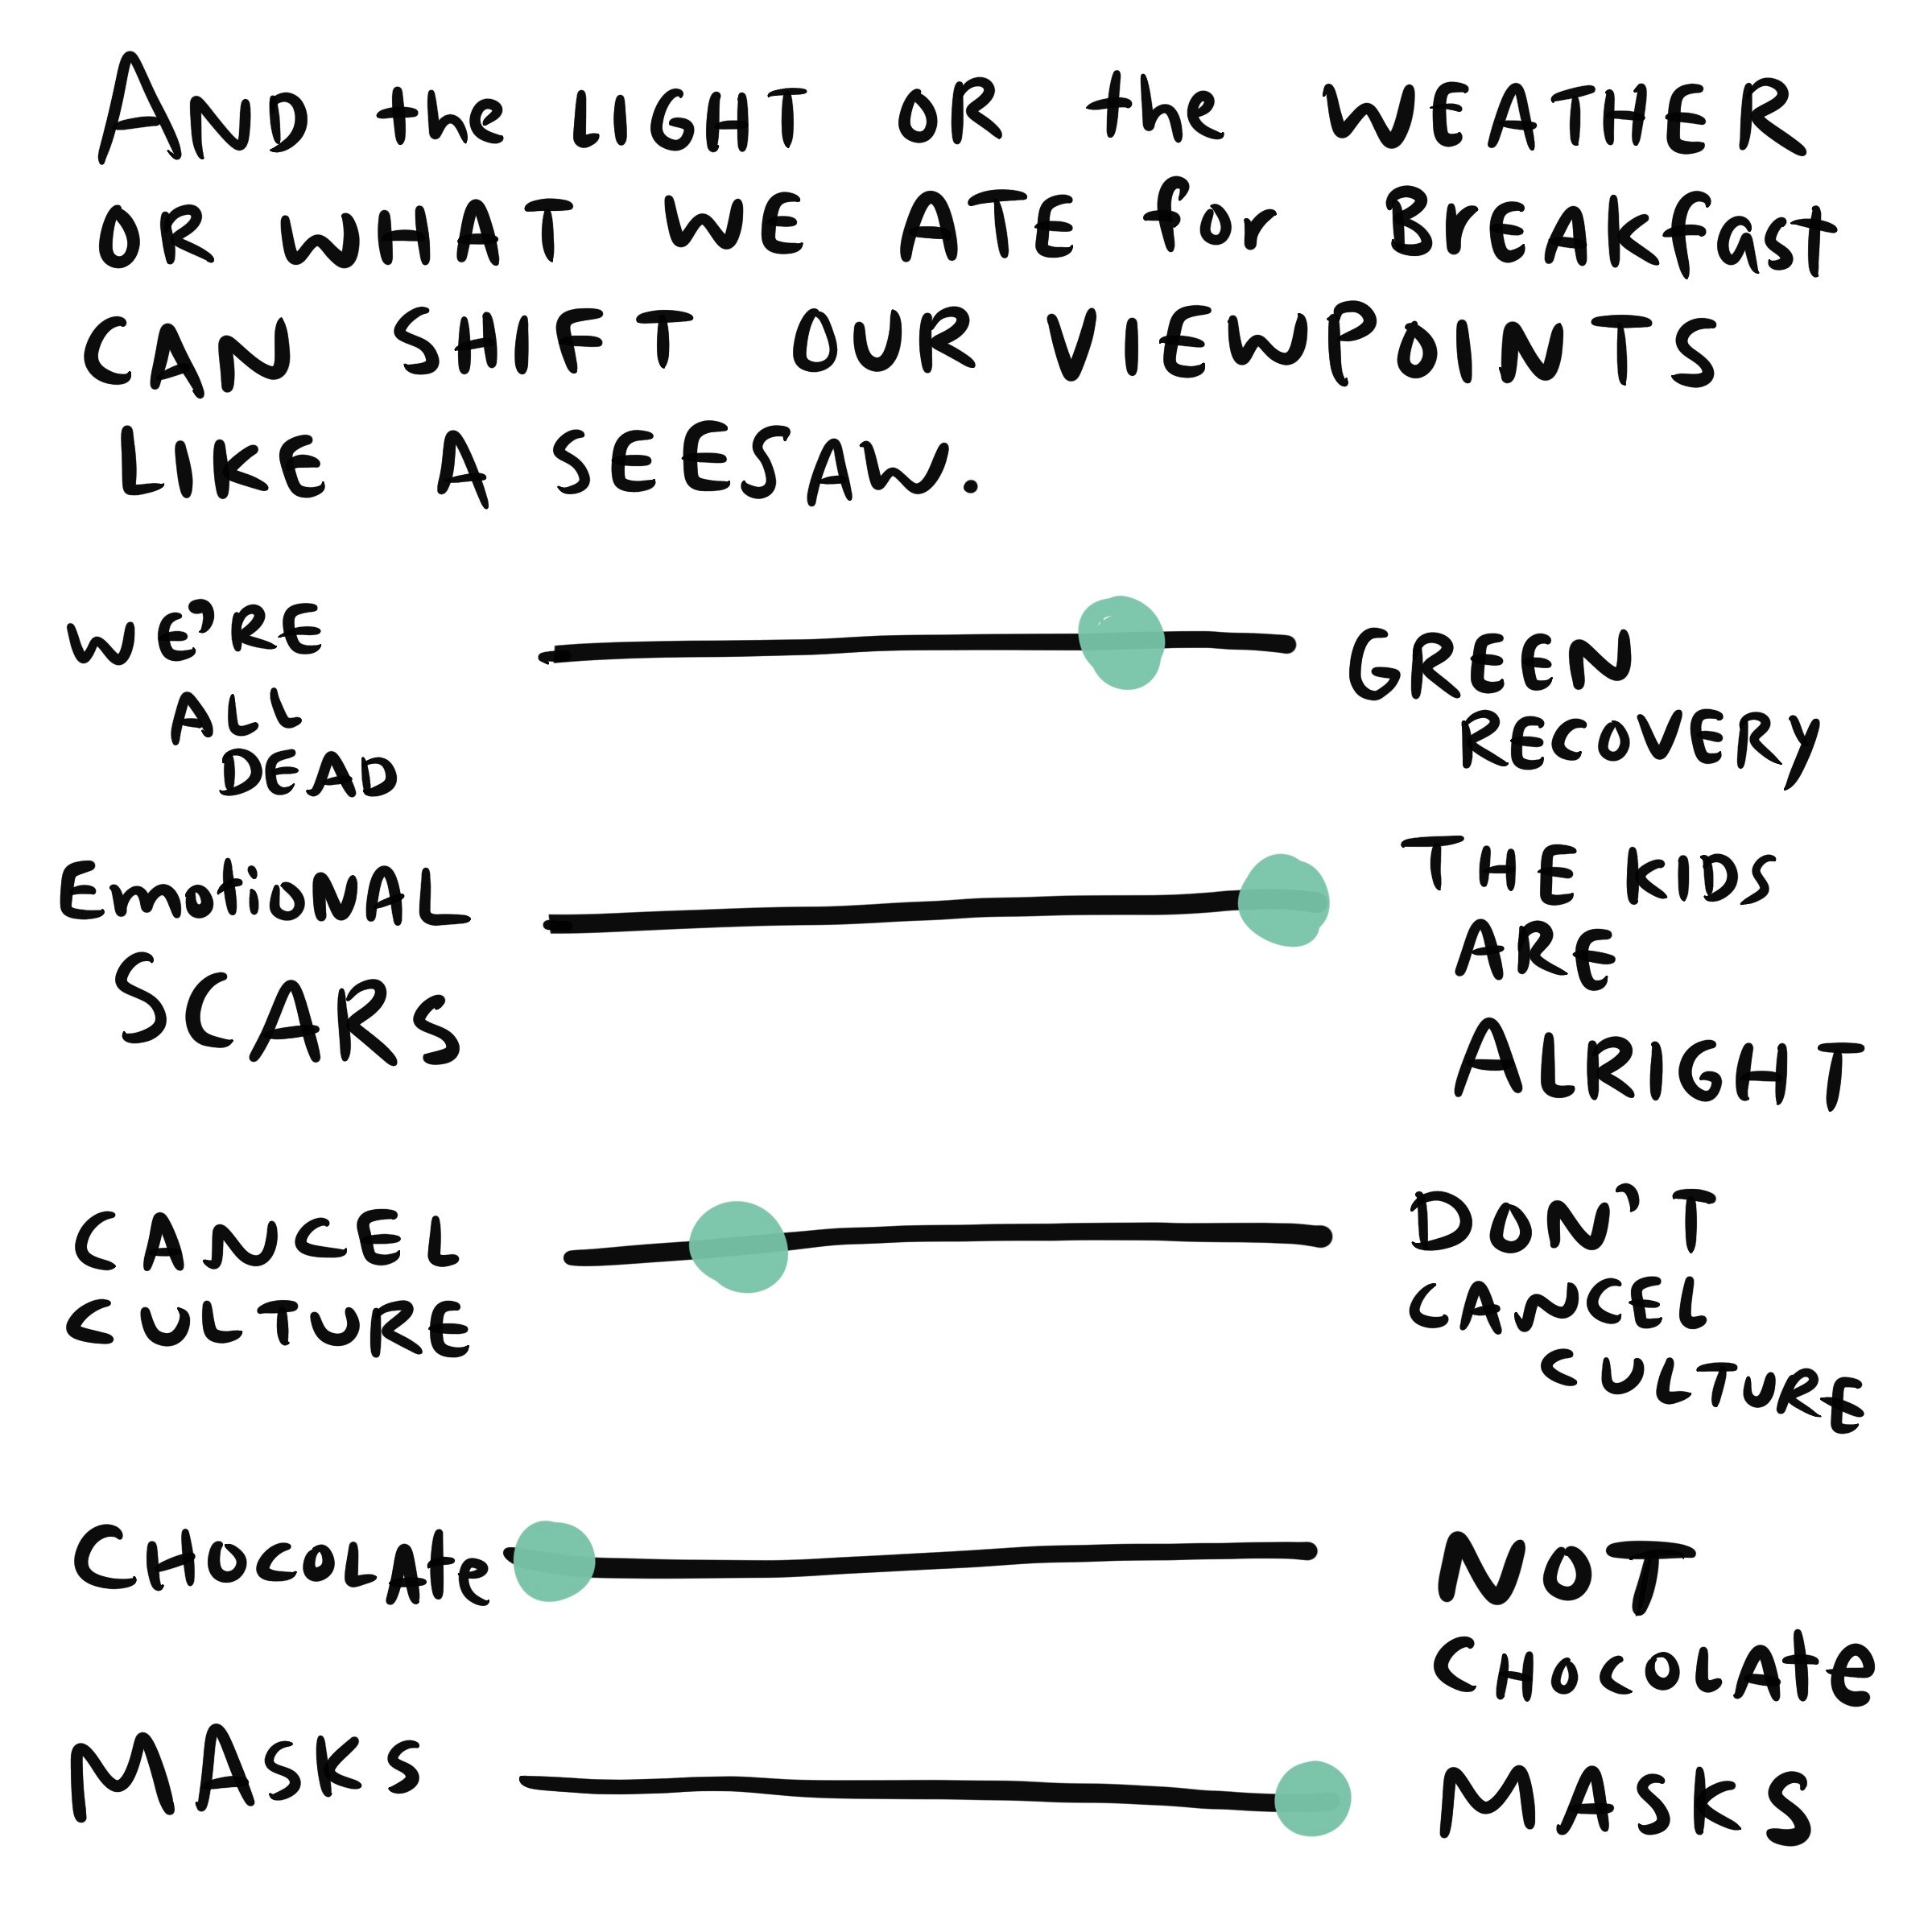 AND the LIGHT OR the WEATHER
OR WHAT WE ATE for BREAKfast
CAN SHIFT OUR VIEWPOINTS
LIKE A SEESAW.
WE'RE
ALL
DEAD
GREEN
RECOVERY
EmotiONAL
SCARS
THE KIDS
ARE
ALRIGHT
CANCEL
CULTURE
DON'T
CANCEL
CULTURE
CHOCOLAte
NOT
CHOCOLAte
MASKS
MASKS